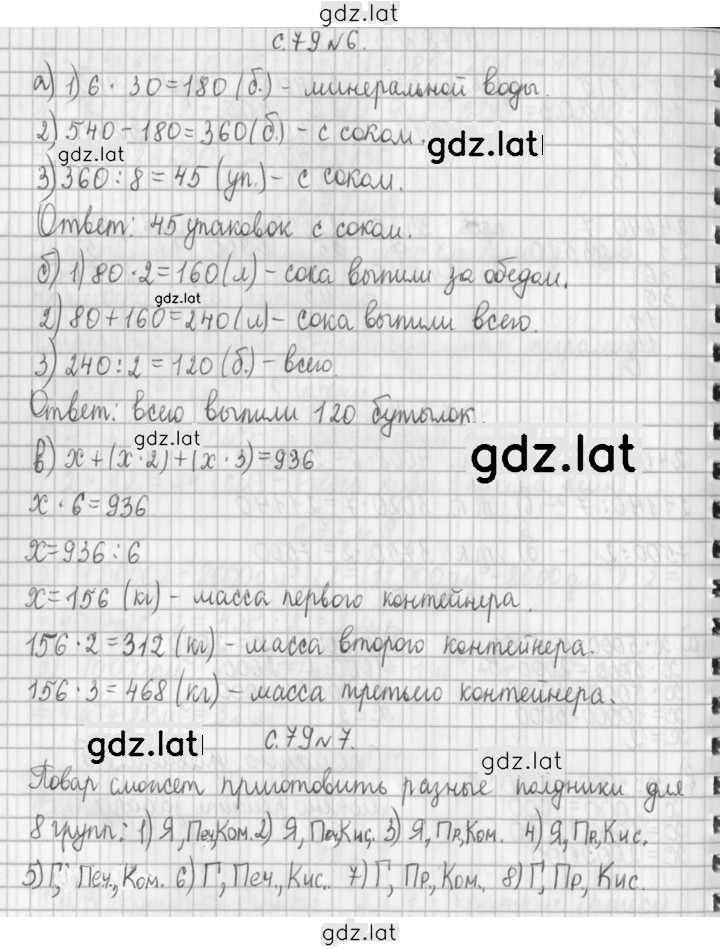 gdz.lat
с.79 №6.
а) 1) 6 · 30 = 180 (б.) - минеральной воды.
2) 540 - 180 = 360 (б.) - с соком.
gdz.lat
gdz.lat
3) 360 : 8 = 45 (уп.) - с соком.
Ответ: 45 упаковок с соком.
б) 1) 80 · 2 = 160 (л) - сока выпили за обедом.
gdz.lat
2) 80 + 160 = 240 (л) - сока выпили всего.
3) 240 : 2 = 120 (б.) - всего.
Ответ: всего выпили 120 бутылок.
gdz.lat
gdz.lat
в) x + (x · 2) + (x · 3) = 936
x · 6 = 936
x = 936 : 6
x = 156 (кг) - масса первого контейнера.
156 · 2 = 312 (кг) - масса второго контейнера.
156 · 3 = 468 (кг) - масса третьего контейнера.
gdz.lat
с.79 №7.
gdz.lat
Повар сможет приготовить разные полдники для
8 групп: 1) Я, Печ, Ком. 2) Я, Печ, Кис. 3) Я, Пр, Ком. 4) Я, Пр, Кис.
5) Г, Печ., Ком. 6) Г, Печ., Кис. 7) Г, Пр., Ком., 8) Г, Пр, Кис.
gdz.lat